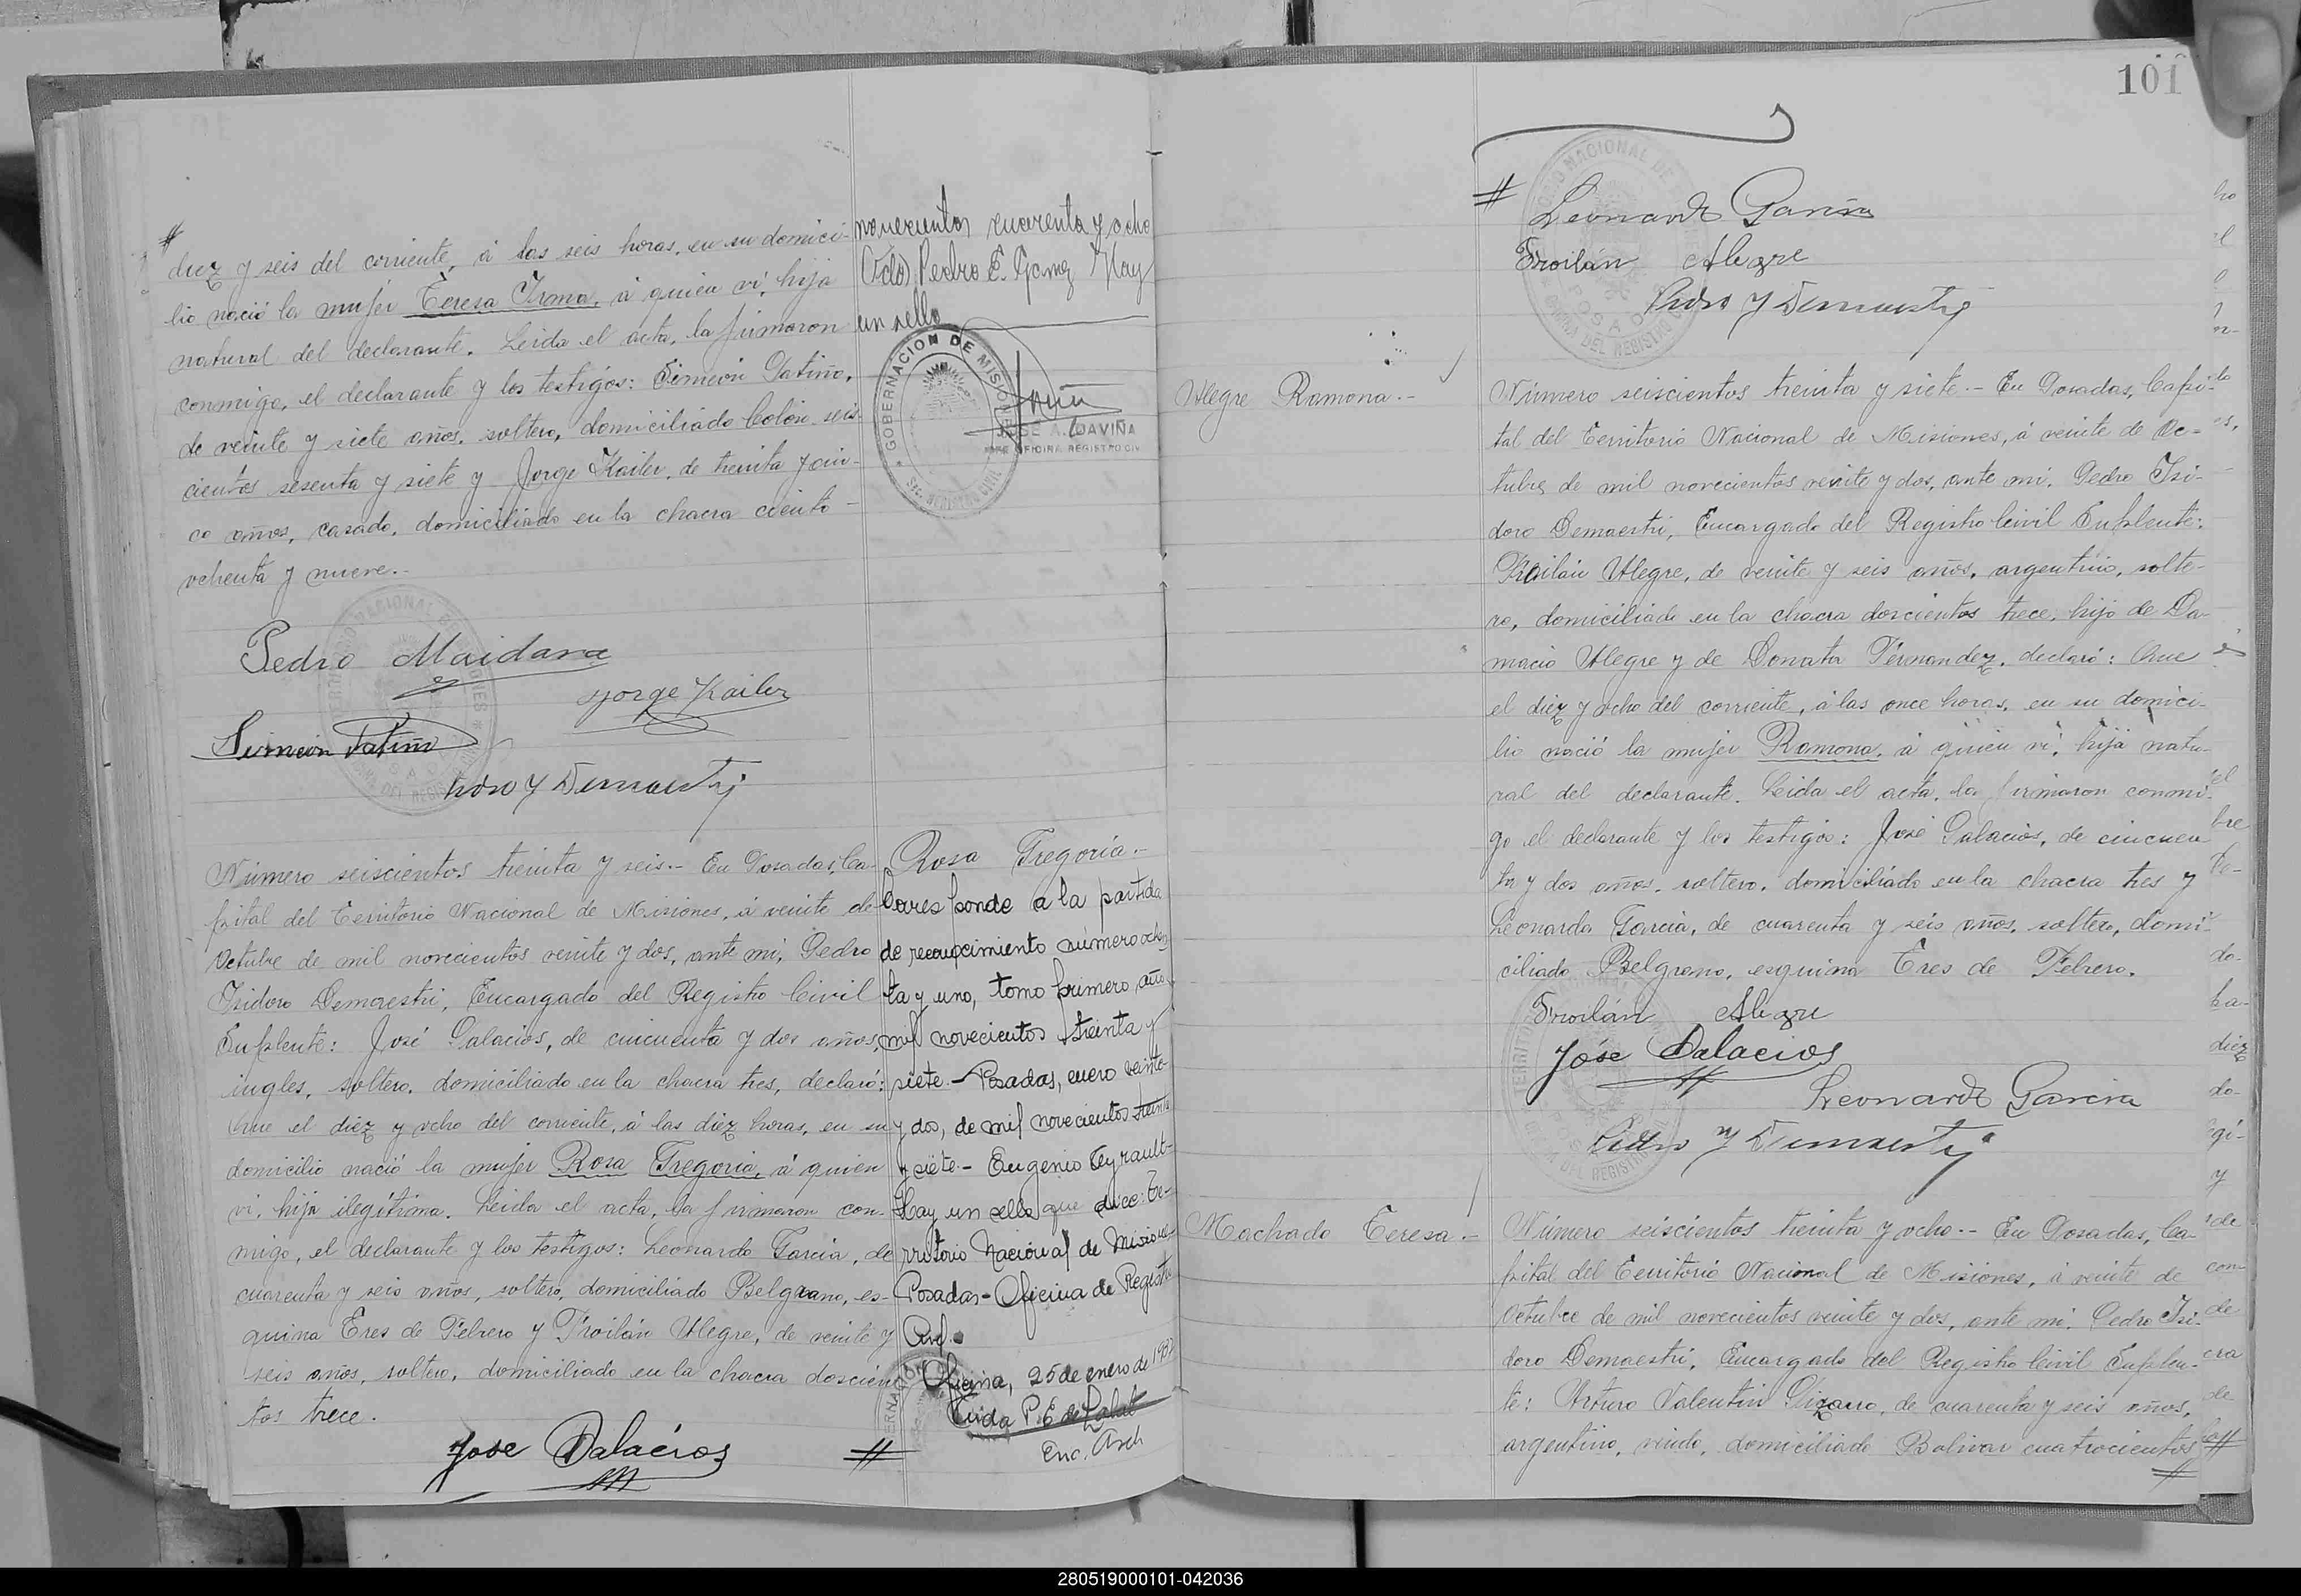 #
diez y seis del corriente, á las seis horas, en su domici-
lio nació la mujer Teresa Irma, á quien ví, hija
natural del declarante. Leida el acta, la firmaron
conmigo, el declarante y los testigos: Simeón Patiño,
de veinte y siete años, soltero, domiciliado Colón seis-
cientos sesenta y siete y Jorge Kailer, de treinta y cin-
co años, casado, domiciliado en la chacra ciento
ochenta y nueve.-
Pedro Maidana
Jorge Kailer
Simeón Patiño
Pedro Y Demaestri
novecientos cuarenta y ocho
(Fdo) Pedro E. Gomez Hay
un sello
GOBERNACION DE MISIONES
JOSE A. LOAVIÑA
JEFE OFICINA REGISTRO CIVIL
Número seiscientos treinta y seis.- En Posadas, Ca-
pital del Territorio Nacional de Misiones, á veinte de
Octubre de mil novecientos veinte y dos, ante mí, Pedro
Isidoro Demaestri, Encargado del Registro Civil
Suplente: José Palacios, de cincuenta y dos años,
ingles, soltero, domiciliado en la chacra tres, declaró:
Que el diez y ocho del corriente, á las diez horas, en su
domicilio nació la mujer Rosa Gregoria, á quien
ví, hija ilegítima. Leida el acta, la firmaron con-
migo, el declarante y los testigos: Leonardo Garcia, de
cuarenta y seis años, soltero, domiciliado Belgrano, es-
quina Tres de Febrero y Froilán Alegre, de veinte y
seis años, soltero, domiciliado en la chacra doscien-
tos trece.
Jose Palacios
#
Rosa Gregoria.-
Corresponde a la partida
de reconocimiento número ochen
ta y uno, tomo primero, año
mil novecientos treinta y
siete.- Posadas, enero veinte
y dos, de mil novecientos treinta
y siete- Eugenio Teyrault-
Hay un sello que dice: Te-
rritorio Nacional de Misiones
Posadas- Oficina de Registro
Civil.
Oficina, 25 de enero de 1982
Enc. Arch
101
#
Leonardo Garcia
Froilán Alegre
Pedro Y Demaestri
Alegre Ramona.-
Número seiscientos treinta y siete.- En Posadas, Capi-
tal del Territorio Nacional de Misiones, á veinte de Oc-
tubre de mil novecientos veinte y dos, ante mí, Pedro Isi-
doro Demaestri, Encargado del Registro Civil Suplente:
Froilán Alegre, de veinte y seis años, argentino, solte-
ro, domiciliado en la chacra doscientos trece, hijo de Da-
macio Alegre y de Donata Fernandez, declaró: Que
el diez y ocho del corriente, á las once horas, en su domici-
lio nació la mujer Ramona, á quien ví, hija natu-
ral del declarante. Leida el acta, la firmaron conmi-
go el declarante y los testigos: José Palacios, de cincuen
ta y dos años, soltero, domiciliado en la chacra tres y
Leonardo Garcia, de cuarenta y seis años, soltero, domi-
ciliado Belgrano, esquina Tres de Febrero.
Froilán Alegre
Jose Palacios
Leonardo Garcia
Pedro Y Demaestri
Machado Teresa.-
Número seiscientos treinta y ocho.- En Posadas, Ca-
pital del Territorio Nacional de Misiones, á veinte de
Octubre de mil novecientos veinte y dos, ante mí, Pedro Isi-
doro Demaestri, Encargado del Registro Civil Suplen-
te: Arturo Valentin Pizarro, de cuarenta y seis años,
argentino, viudo, domiciliado Bolivar cuatrocientos
#
280519000101-042036